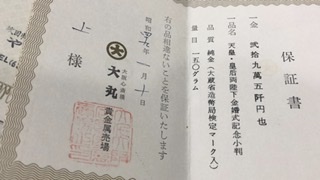 保証書
一金 弐拾九萬五阡円也
一品名 天皇・皇后両陛下金婚式記念小判
品質 純金(大蔵省造幣局検定マーク入)
量目 一五〇グラム
右の品相違ないことを保証いたします
昭和四九年一月十日
大阪心斎橋
大丸
貴金属売場
上様